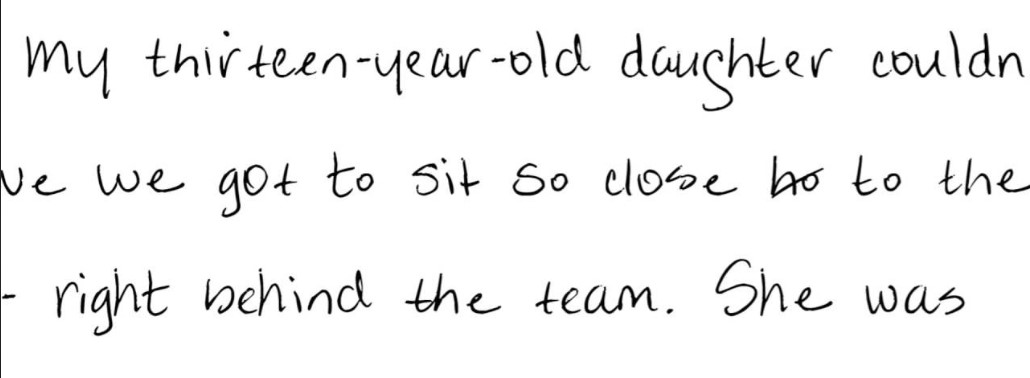 My thirteen-year-old daughter couldn
ve we got to sit so close to to the
- right behind the team. She was